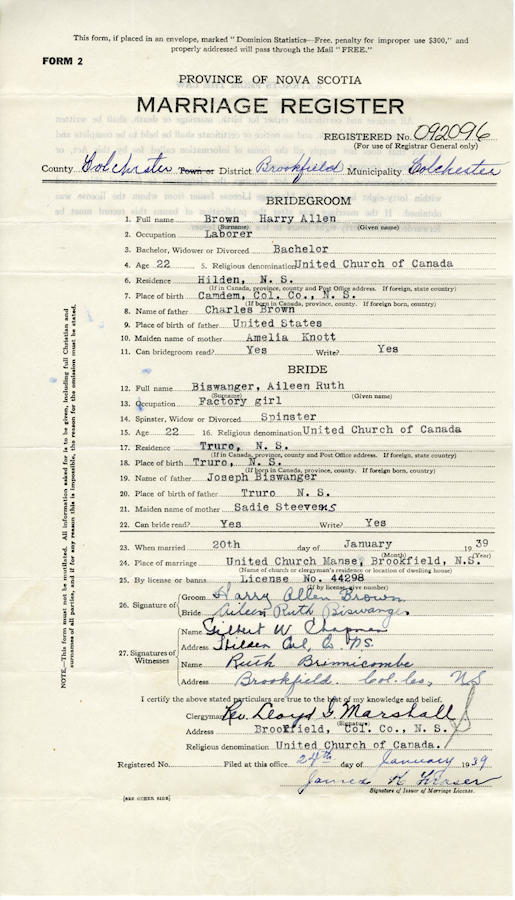 This form, if placed in an envelope, marked "Dominion Statistics—Free, penalty for improper use $300," and
properly addressed will pass through the Mail "FREE."
FORM 2
PROVINCE OF NOVA SCOTIA
MARRIAGE REGISTER
REGISTERED No. 092096
(For use of Registrar General only)
County Colchester Town or District Brookfield Municipality Colchester
BRIDEGROOM
1. Full name Brown Harry Allen
(Surname) (Given name)
2. Occupation Laborer
3. Bachelor, Widower or Divorced Bachelor
4. Age 22 5. Religious denomination United Church of Canada
6. Residence Hilden, N. S.
(If in Canada, province, county and Post Office address. If foreign, state country)
7. Place of birth Camdem, Col. Co., N. S.
(If born in Canada, province, county. If foreign born, country)
8. Name of father Charles Brown
9. Place of birth of father United States
10. Maiden name of mother Amelia Knott
11. Can bridegroom read? Yes Write? Yes
BRIDE
12. Full name Biswanger, Aileen Ruth
(Surname) (Given name)
13. Occupation Factory girl
14. Spinster, Widow or Divorced Spinster
15. Age 22 16. Religious denomination United Church of Canada
17. Residence Truro, N. S.
(If in Canada, province, county and Post Office address. If foreign, state country)
18. Place of birth Truro, N. S.
(If born in Canada, province, county. If foreign born, country)
19. Name of father Joseph Biswanger
20. Place of birth of father Truro N. S.
21. Maiden name of mother Sadie Steevens
22. Can bride read? Yes Write? Yes
23. When married 20th day of January 1939
(Month) (Year)
24. Place of marriage United Church Manse, Brookfield, N.S.
(Name of church or clergyman's residence or location of dwelling house)
25. By license or banns License No. 44298
(If by license, give number)
26. Signature of Groom Harry Allen Brown
Bride Aileen Ruth Biswanger
27. Signatures of Witnesses
Name Gilbert W Chapman
Address Hilden Col. Co. N.S.
Name Ruth Brimicombe
Address Brookfield. Col. Co., N S
I certify the above stated particulars are true to the best of my knowledge and belief.
Clergyman Rev. Lloyd G. Marshall
(Signature)
Address Brookfield, Col. Co., N. S.
Religious denomination United Church of Canada.
Registered No. Filed at this office 24th day of January 1939
James K Fraser
Signature of Issuer of Marriage License.
[SEE OTHER SIDE]
NOTE.—This form must not be mutilated. All information asked for is to be given, including full Christian and
surnames of all parties, and if for any reason this is impossible, the reason for the omission must be stated.